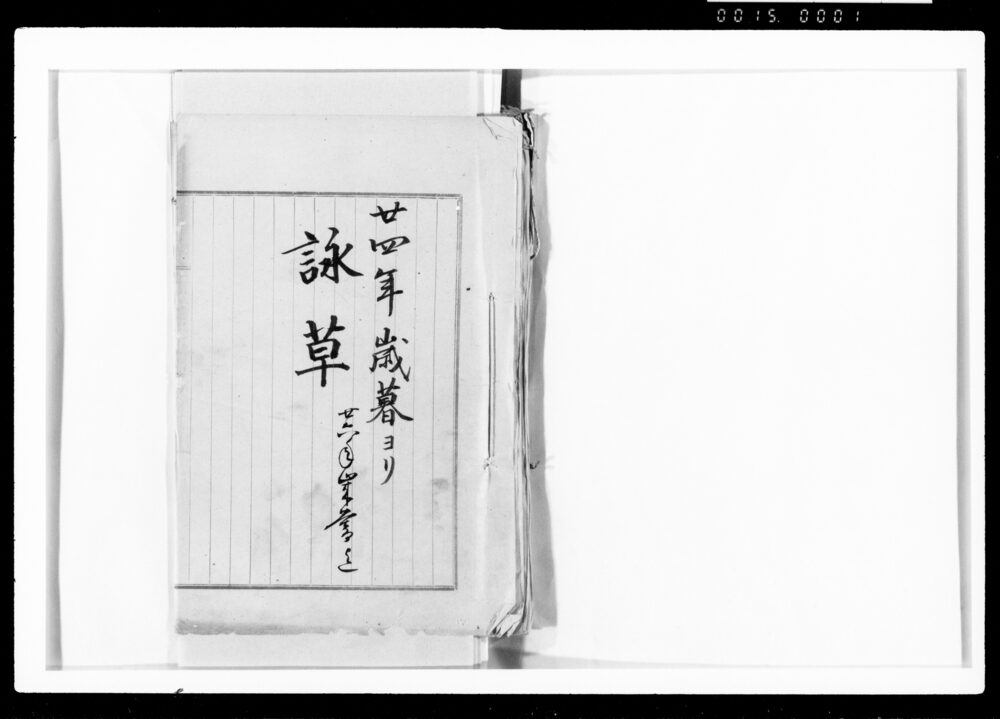 0015. 0001
廿四年歳暮ヨリ
詠草
廿六年歳暮迄